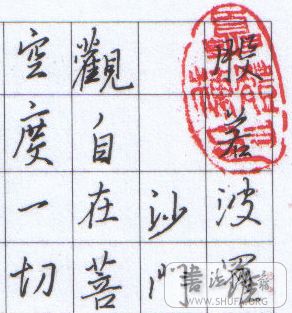 般若波羅
沙門
觀自在菩
空度一切
WWW.SHUFA.ORG